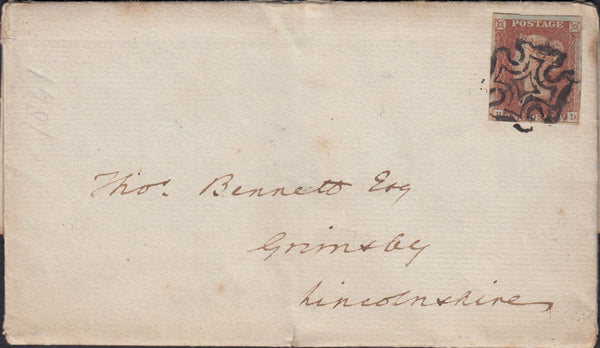 1841
POSTAGE
Thos. Bennett Esq
Grimsby
Lincolnshire